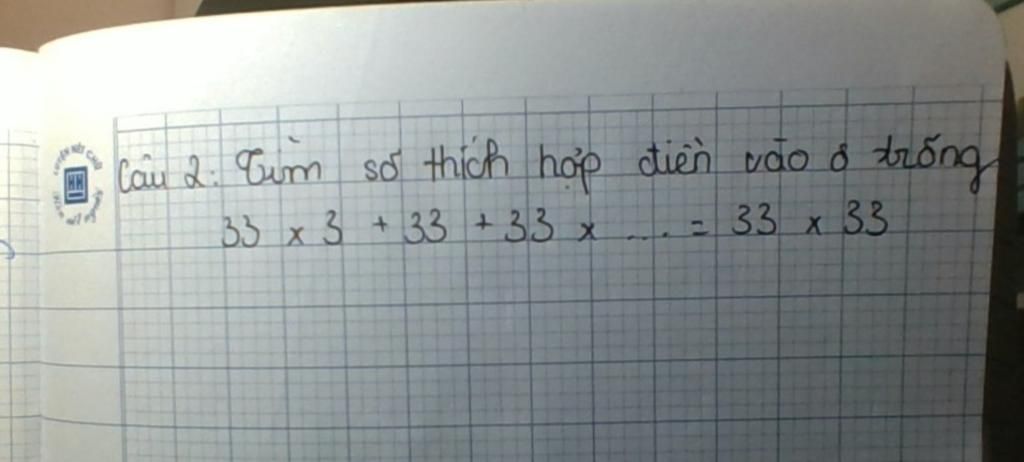 Câu 2: Tìm số thích hợp điền vào ô trống
33 x 3 + 33 + 33 x .... = 33 x 33